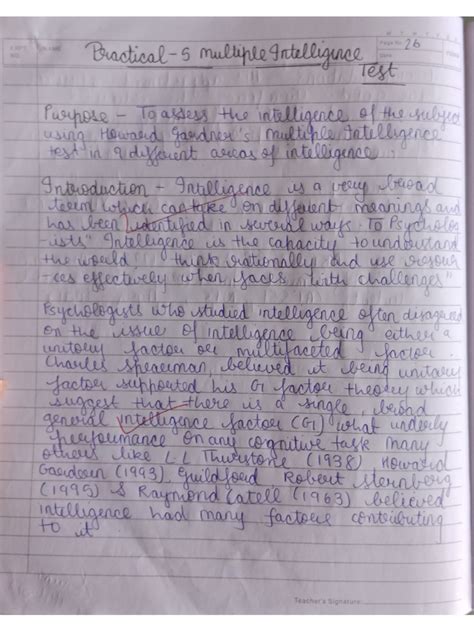 Page No. 26
Date
Practical - 5 Multiple Intelligence
Test
Purpose - To assess the intelligence of the subject
using Howard Gardner's Multiple Intelligence
test in 9 different areas of intelligence.
Introduction - Intelligence is a very broad
term which can take on different meanings and
has been identified in several ways. To Psycholog
-ists "Intelligence is the capacity to understand
the would, think rationally and use resour
-ces effectively when faces with challenges"
Psychologists who studied intelligence often disagreed
on the issue of intelligence being either a
unitary factor or multifaceted factor.
Charles Spearman, believed it being unitary
factor supported his G factor theory which
suggest that there is a single, broad
general intelligence factor (G) what underly
performance on any cognitive task many
others like LL Thurstone (1938) Howard
Gardner (1993) Guildford, Robert Sternberg
(1995) & Raymond Catell (1963) believed
intelligence had many factors contributing
to it
Teacher's Signature: